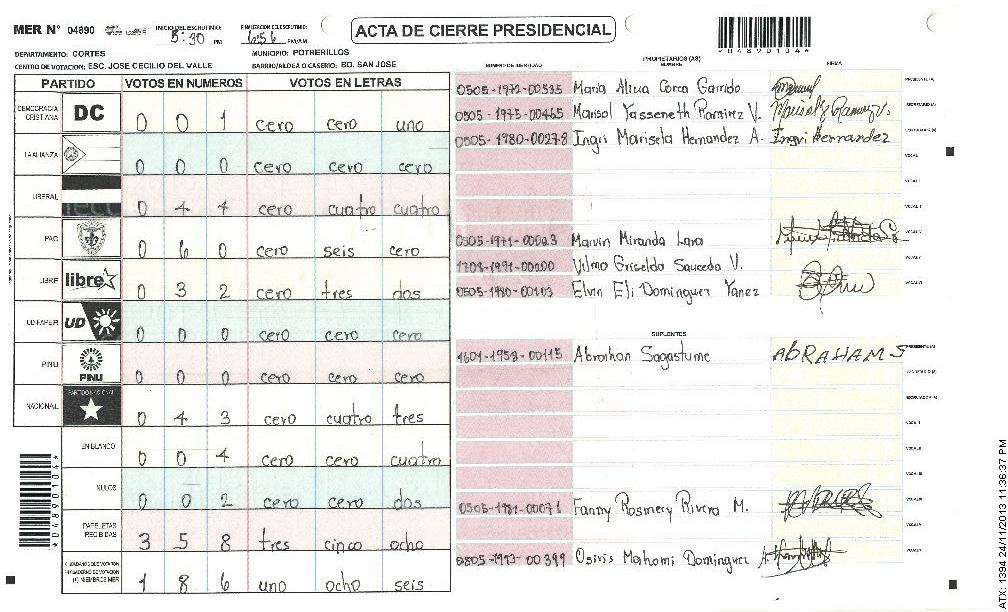 MER N° 04890
INICIO DEL ESCRUTINIO: 5:30 PM
FINALIZACION DEL ESCRUTINIO: 6:56 PM/AM
ACTA DE CIERRE PRESIDENCIAL
*04890104*
DEPARTAMENTO: CORTES
MUNICIPIO: POTRERILLOS
CENTRO DE VOTACION: ESC. JOSE CECILIO DEL VALLE
BARRIO/ALDEA O CASERIO: BO. SAN JOSE
PARTIDO VOTOS EN NUMEROS VOTOS EN LETRAS
DEMOCRACIA CRISTIANA DC 0 0 1 cero cero uno
LA ALIANZA 0 0 0 cero cero cero
LIBERAL 0 4 4 cero cuatro cuatro
PAC 0 6 0 cero seis cero
LIBRE libre 0 3 2 cero tres dos
UD FAPER UD 0 0 0 cero cero cero
PINU PINU 0 0 0 cero cero cero
NACIONAL PARTIDO NACIONAL 0 4 3 cero cuatro tres
EN BLANCO 0 0 4 cero cero cuatro
NULOS 0 0 2 cero cero dos
PAPELETAS RECIBIDAS 3 5 8 tres cinco ocho
CIUDADANOS QUE VOTARON EN CUADERNO DE VOTACION (+) MIEMBROS MER 1 8 6 uno ocho seis
*04890104*
NUMERO DE IDENTIDAD
PROPIETARIOS (AS)
NOMBRE
FIRMA
0505-1972-00535 Maria Alicia Corea Garrido PRESIDENTE (A)
0505-1975-00465 Marisol Yasseneth Ramirez V. Marisol Y Ramirez V. SECRETARIO (A)
0505-1980-00278 Ingri Marisela Hernandez A. Ingri Hernandez ESCRUTADOR (A)
VOCAL I
VOCAL II
0505-1971-00023 Marvin Miranda Lara
Vilma Griselda Sauceda V.
0505-1980-00103 Elvin Eli Dominguez Yanez
SUPLENTES
1601-1958-00115 Abrahan Sagastume ABRAHAM S PRESIDENTE (A)
SECRETARIO (A)
ESCRUTADOR (A)
0505-1981-00071 Fanny Rosmery Rivera M.
0505-1993-00399 Osiris Mahomi Dominguez
ATX: 1394 24/11/2013 11:36:37 PM